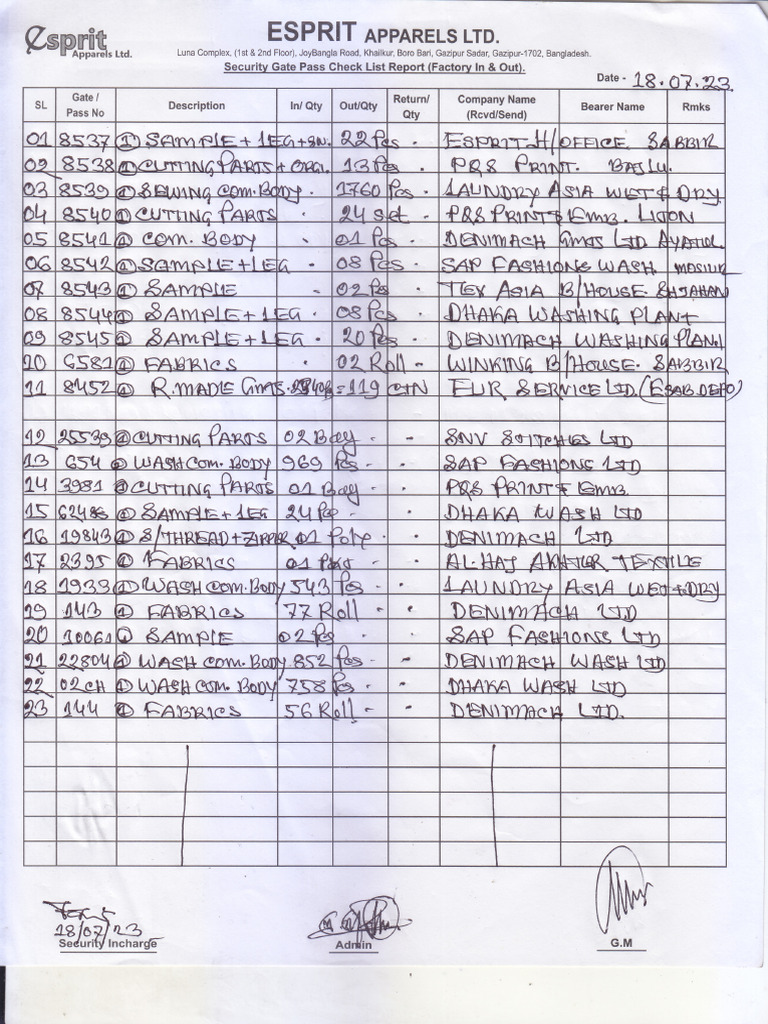 Esprit
Apparels Ltd.
ESPRIT APPARELS LTD.
Luna Complex, (1st & 2nd Floor), JoyBangla Road, Khailkur, Boro Bari, Gazipur Sadar, Gazipur-1702, Bangladesh.
Security Gate Pass Check List Report (Factory In & Out).
Date - 18.07.23
SL Gate / Pass No Description In/ Qty Out/Qty Return/ Qty Company Name (Rcvd/Send) Bearer Name Rmks
01 8537 ① SAMPLE + LEG + SN. 22 Pcs - ESPRIT H/OFFICE SABBIR
02 8538 ① CUTTING PARTS + ORGI. 13 Pcs PQS PRINT.
03 8539 ① SEWING COM. BODY. 1760 Pcs - LAUNDRY ASIA WET & DRY
04 8540 ① CUTTING PARTS - 24 Set - PQS PRINT & EMB. LITON
05 8541 ① COM. BODY - 01 Pcs - DENIMACH GMTS LTD
06 8542 ① SAMPLE + LEG - 08 Pcs - SAP FASHIONS WASH MOSIUR
07 8543 ① SAMPLE - 02 Ps - TEX ASIA B/HOUSE SHJAHAN
08 8544 ① SAMPLE + LEG - 08 Pcs - DHAKA WASHING PLANT
09 8545 ① SAMPLE + LEG - 20 Pcs - DENIMACH WASHING PLANT
10 6581 ① FABRICS - 02 Roll - WINKING B/HOUSE. SABBIR
11 8452 ① R. MADE GMTS. = 119 CTN EUR SERVICE LTD. (ESAB. DEPO)
12 25539 ① CUTTING PARTS 02 Bag - - SNV STITCHES LTD
13 654 ① WASH COM. BODY 969 Pcs - - SAP FASHIONS LTD
14 3981 ① CUTTING PARTS 01 Bag - - PQS PRINT & EMB
15 62486 ① SAMPLE + LEG 24 Pcs - - DHAKA WASH LTD
16 19843 ① S/THREAD + ZIPPER 01 Poly - DENIMACH LTD
17 2395 ① FABRICS 01 - AL-HAJ AKHTER TEXTILE
18 1933 ① WASH COM. BODY 543 Pcs - LAUNDRY ASIA WET + DRY
19 143 ① FABRICS 77 Roll - - DENIMACH LTD
20 10061 ① SAMPLE 02 Ps - - SAP FASHIONS LTD
21 22804 ① WASH COM. BODY 852 Pcs - - DENIMACH WASH LTD
22 02 CH ① WASH COM. BODY 758 Pcs - - DHAKA WASH LTD
23 144 ① FABRICS 56 Roll - - DENIMACH LTD.
18/07/23
Security Incharge Admin G.M